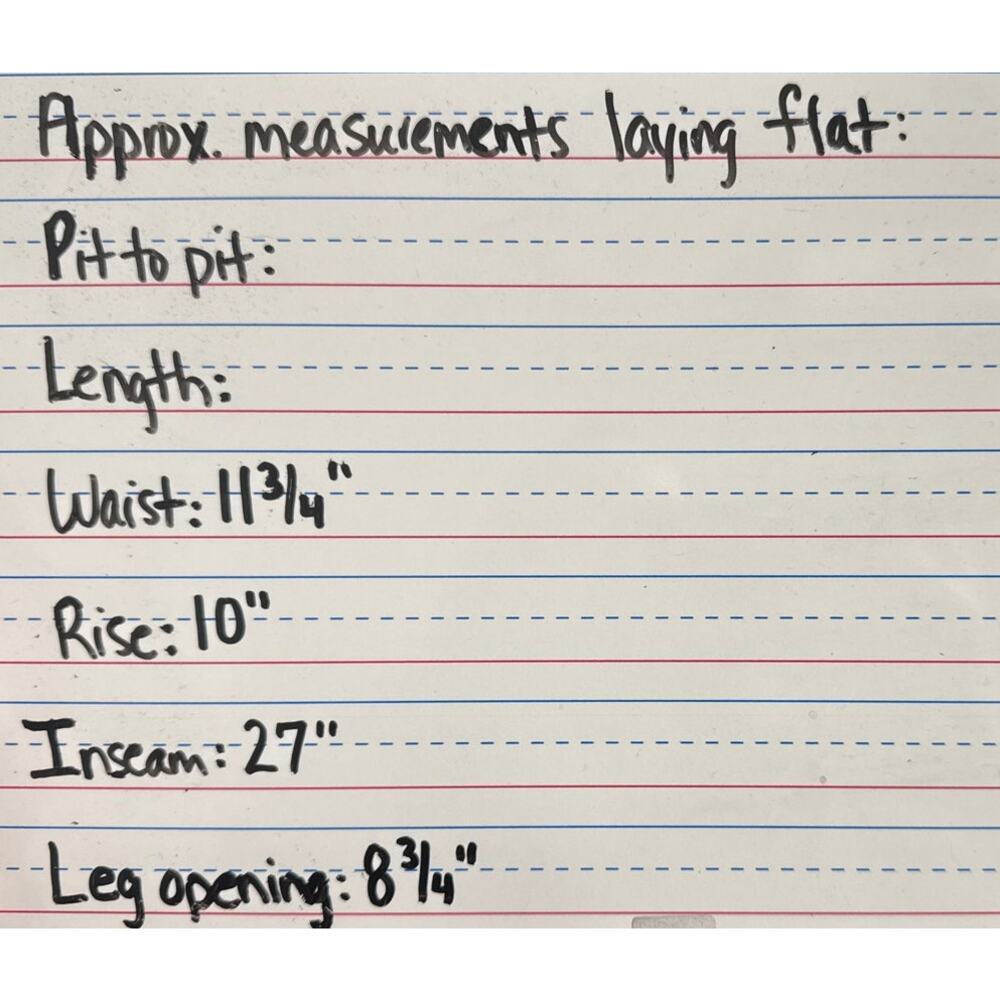 Approx. measurements laying flat:
Pit to pit:
Length:
Waist: 11 3/4"
Rise: 10"
Inseam: 27"
Leg opening: 8 3/4"